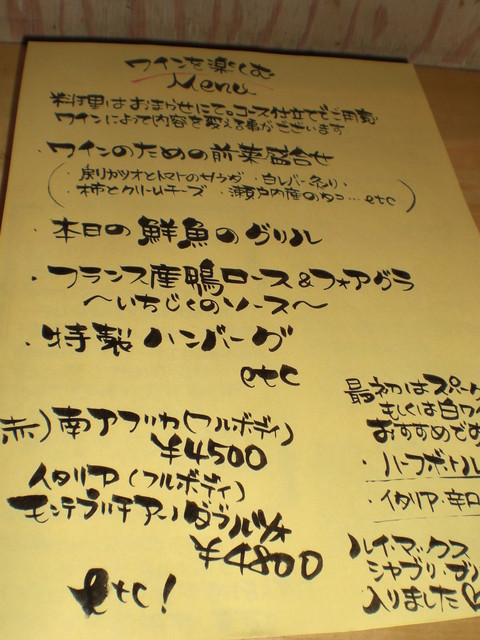 ワインを楽しむ
Menu
料理はおまかせにて。コース仕立てでご用意
ワインによって内容を変える事がございます
・ワインのための前菜盛合せ
・戻りガツオとトマトのサラダ ・白レバー炙り、
・柿とクリームチーズ ・瀬戸内産のタコ…etc
・本日の鮮魚のグリル
・フランス産鴨ロース&フォアグラ
〜いちじくのソース〜
・特製ハンバーグ
etc
赤)南アフリカ(フルボディ)
¥4500
イタリア(フルボディ)
モンテプルチアーノダブルッツォ
¥4800
etc!
最初はスパーク
もしくは白ワ
おすすめです
・ハーフボトル
・イタリア・辛口
ルイ・マックス
シャブリ・プ
入りました